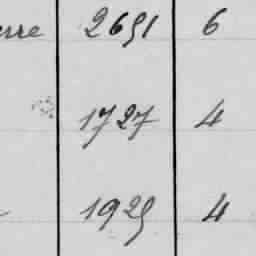 erre 2651 6
1727 4
1925 4